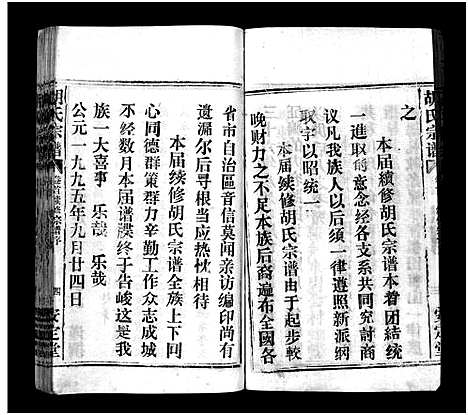 胡氏宗谱
之
本届续修胡氏宗谱本着团结统
一进取的意念经各支系共同究讨商
议凡我族人以后须一律遵照新派纲
取字以昭统一
本届续修胡氏宗谱由于起步较
晚财力之不足本族后裔遍布全國各
安定堂
省市自治區音信莫闻亲访编印尚有
遗漏尔后寻根当应热忱相待
本届续修胡氏宗谱全族上下同
心同德群策群力辛勤工作众志成城
不经数月本届谱牒终于告峻这是一
族一大喜事 乐哉 乐哉
公元一九九五年九月廿四日
胡氏宗谱
四
安定堂